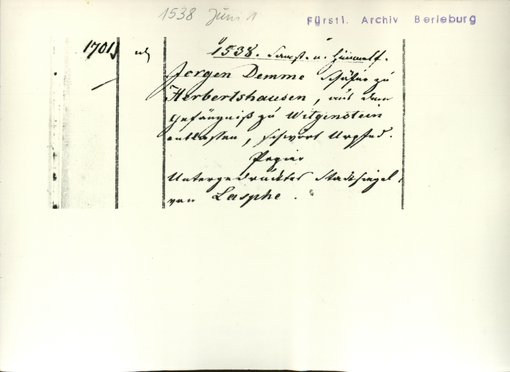 1538 Juni 1
Fürstl. Archiv Berleburg
1701
1538. Samst. n. Himmelf.
Jorgen Demme Schäfer zu
Herbertshausen, aus dem
Gefängniß zu Witgenstein
entlassen, schwört Urpfed.
Papier
Untergedrücktes Stadtsiegel
von Laasphe.